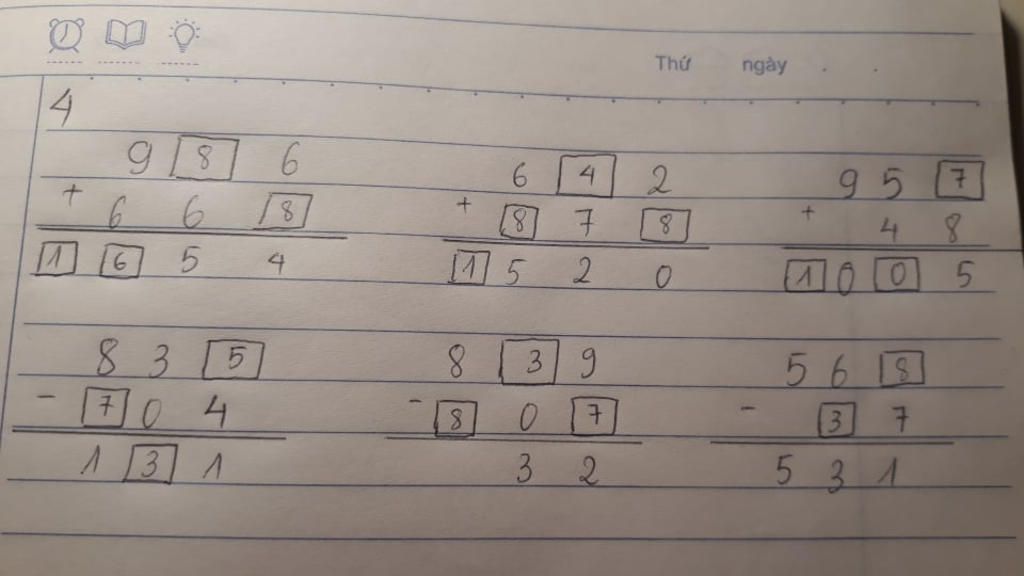 Thứ ngày . .
4
9 8 6 6 4 2 9 5 7
+ + +
6 6 8 8 7 8 4 8
1 6 5 4 1 5 2 0 1 0 0 5
8 3 5 8 3 9 5 6 8
- 7 0 4 - 8 0 7 - 3 7
1 3 1 3 2 5 3 1